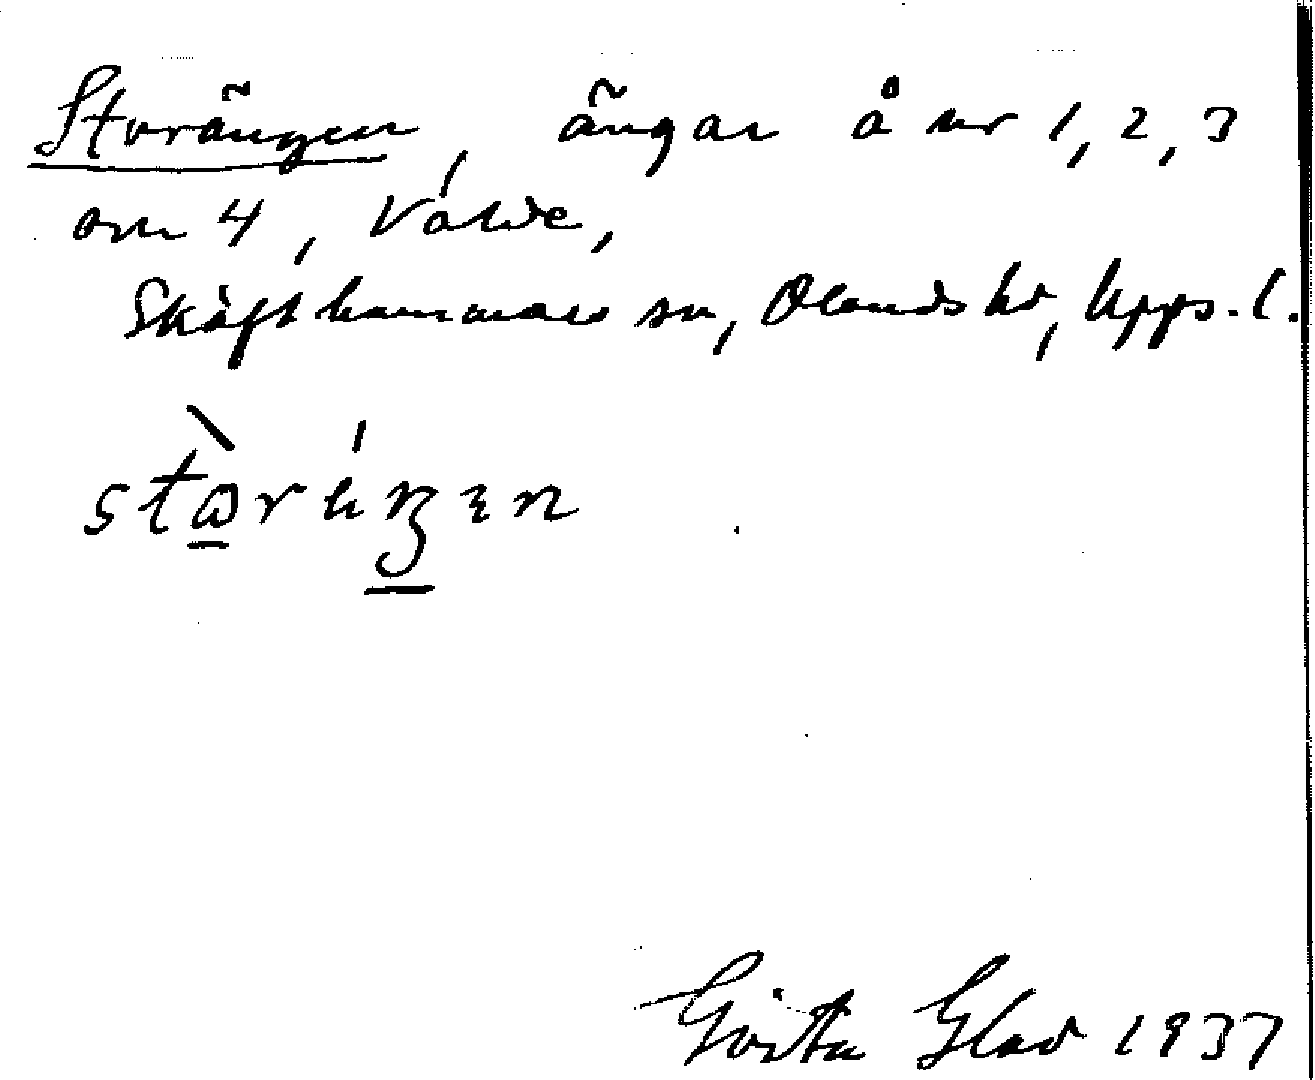 Storängen, ängar å nr 1, 2, 3
om 4, Valde,
Skäfthammars sn, Olands hd, Upps. l.
Gösta Glad 1937